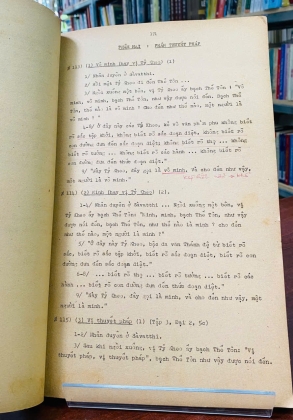 PHẦN HAI : PHẦN THUYẾT PHÁP
(1) Vô minh hay vị Tỷ Kheo (1)
1/ Nhân duyên ở Sàvatthi.
2/ Rồi một Tỷ Kheo đi đến Thế Tôn ...
3/ Sau khi ngồi xuống, vị Tỷ Kheo ấy bạch Thế Tôn : "Vô
minh, vô minh, bạch Thế Tôn, như vậy được nói đến. Bạch Thế
Tôn, thế nào là vô minh ? Cho đến như thế nào, một người là
vô minh ? "
sắc, không biết rõ sắc tập khởi, không biết rõ sắc đoạn diệt, không biết rõ
con đường đưa đến sắc đoạn diệt.
không biết rõ thọ ... Không
biết rõ tưởng ... Không biết rõ các hành ... không biết rõ
con đường đưa đến thức đoạn diệt."
5/ Này Tỷ Kheo, đây gọi là vô minh. Và cho đến như vậy,
một người là vô minh."
# 114) (2) Minh (hay vị Tỷ Kheo) (2).
1-4/ Nhân duyên ở Sàvatthi ... Ngồi xuống một bên, vị
Tỷ Kheo ấy bạch Thế Tôn: "Minh, minh, bạch Thế Tôn, như vậy
được nói đến, bạch Thế Tôn, như thế nào là minh ? Cho đến
như thế nào, một người là minh ?"
5/ "Ở đây này Tỷ Kheo, bậc đa văn Thánh đệ tử biết rõ
sắc, biết rõ sắc tập khởi, biết rõ sắc đoạn diệt, biết rõ con
đường đưa đến sắc đoạn diệt."
6-8/ ... biết rõ thọ ... biết rõ tưởng ... biết rõ các
hành ... biết rõ con đường đưa đến thức đoạn diệt.
9/ "Đây này Tỷ Kheo, đây gọi là minh, và cho đến như vậy, một
người là minh."
# 115) (3) Vị thuyết pháp (1) (Tạp 1, Đại 2, 5c)
1-2/ Nhân duyên ở Sàvatthi.
3/ Sau khi ngồi xuống, vị Tỷ Kheo ấy bạch Thế Tôn: "Vị
thuyết pháp, vị thuyết pháp", bạch Thế Tôn như vậy được nói đến.